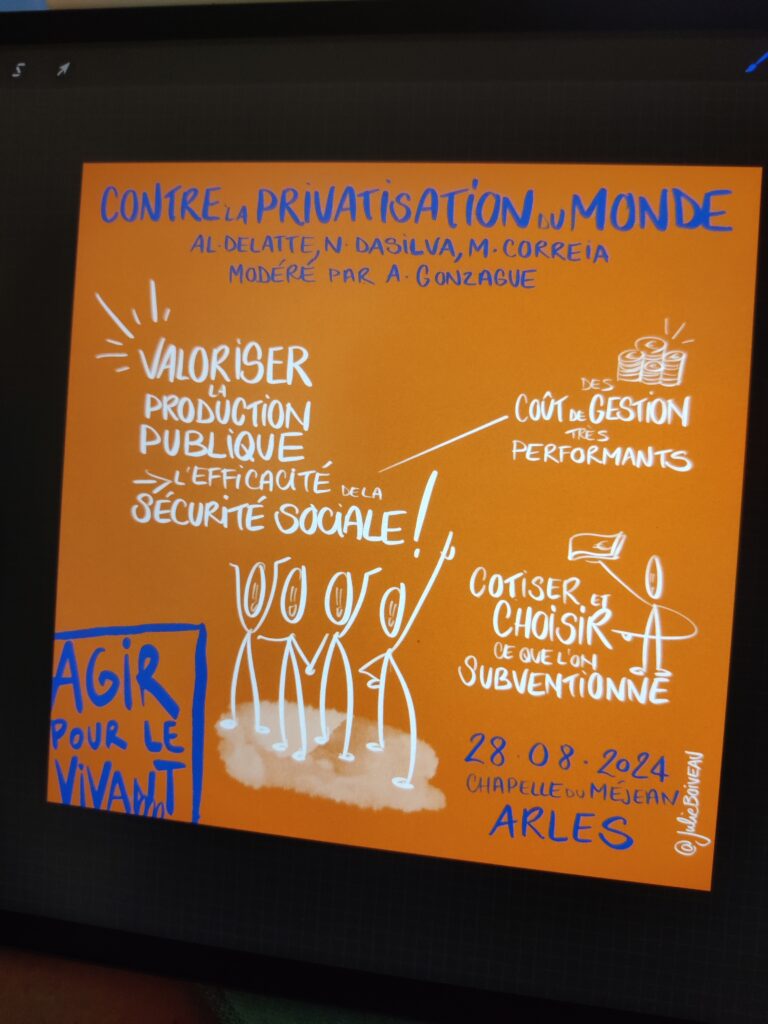 S
CONTRE LA PRIVATISATION DU MONDE
AL. DELATTE, N. DASILVA, M. CORREIA
MODÉRÉ PAR A. GONZAGUE
VALORISER
LA
PRODUCTION
PUBLIQUE
L'EFFICACITÉ DE LA
SÉCURITÉ SOCIALE !
DES
COÛT DE GESTION
TRÈS
PERFORMANTS
COTISER ET
CHOISIR
CE QUE L'ON
SUBVENTIONNE
AGIR
POUR LE
VIVANT
28.08.2024
CHAPELLE DU MÉJEAN
ARLES
@JulieBOiVEAU